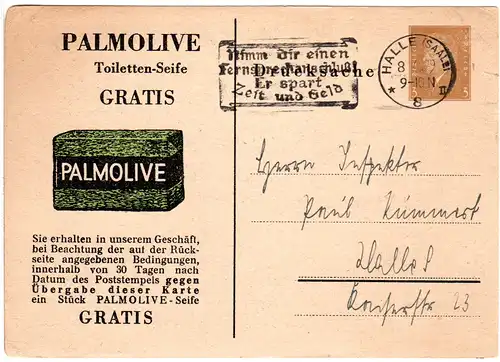 PALMOLIVE
Toiletten-Seife
GRATIS
PALMOLIVE
Sie erhalten in unserem Geschäft,
bei Beachtung der auf der Rück-
seite angegebenen Bedingungen,
innerhalb von 30 Tagen nach
Datum des Poststempels gegen
Übergabe dieser Karte
ein Stück PALMOLIVE-Seife
GRATIS
Nimm dir einen
Fernsprechanschluß
Er spart
Zeit und Geld
Drucksache
HALLE (SAALE)
8
9-10 N
* 8 II
3 3
Herrn Inspektor
Paul Kummert
Halle S
Kaiserstr 23